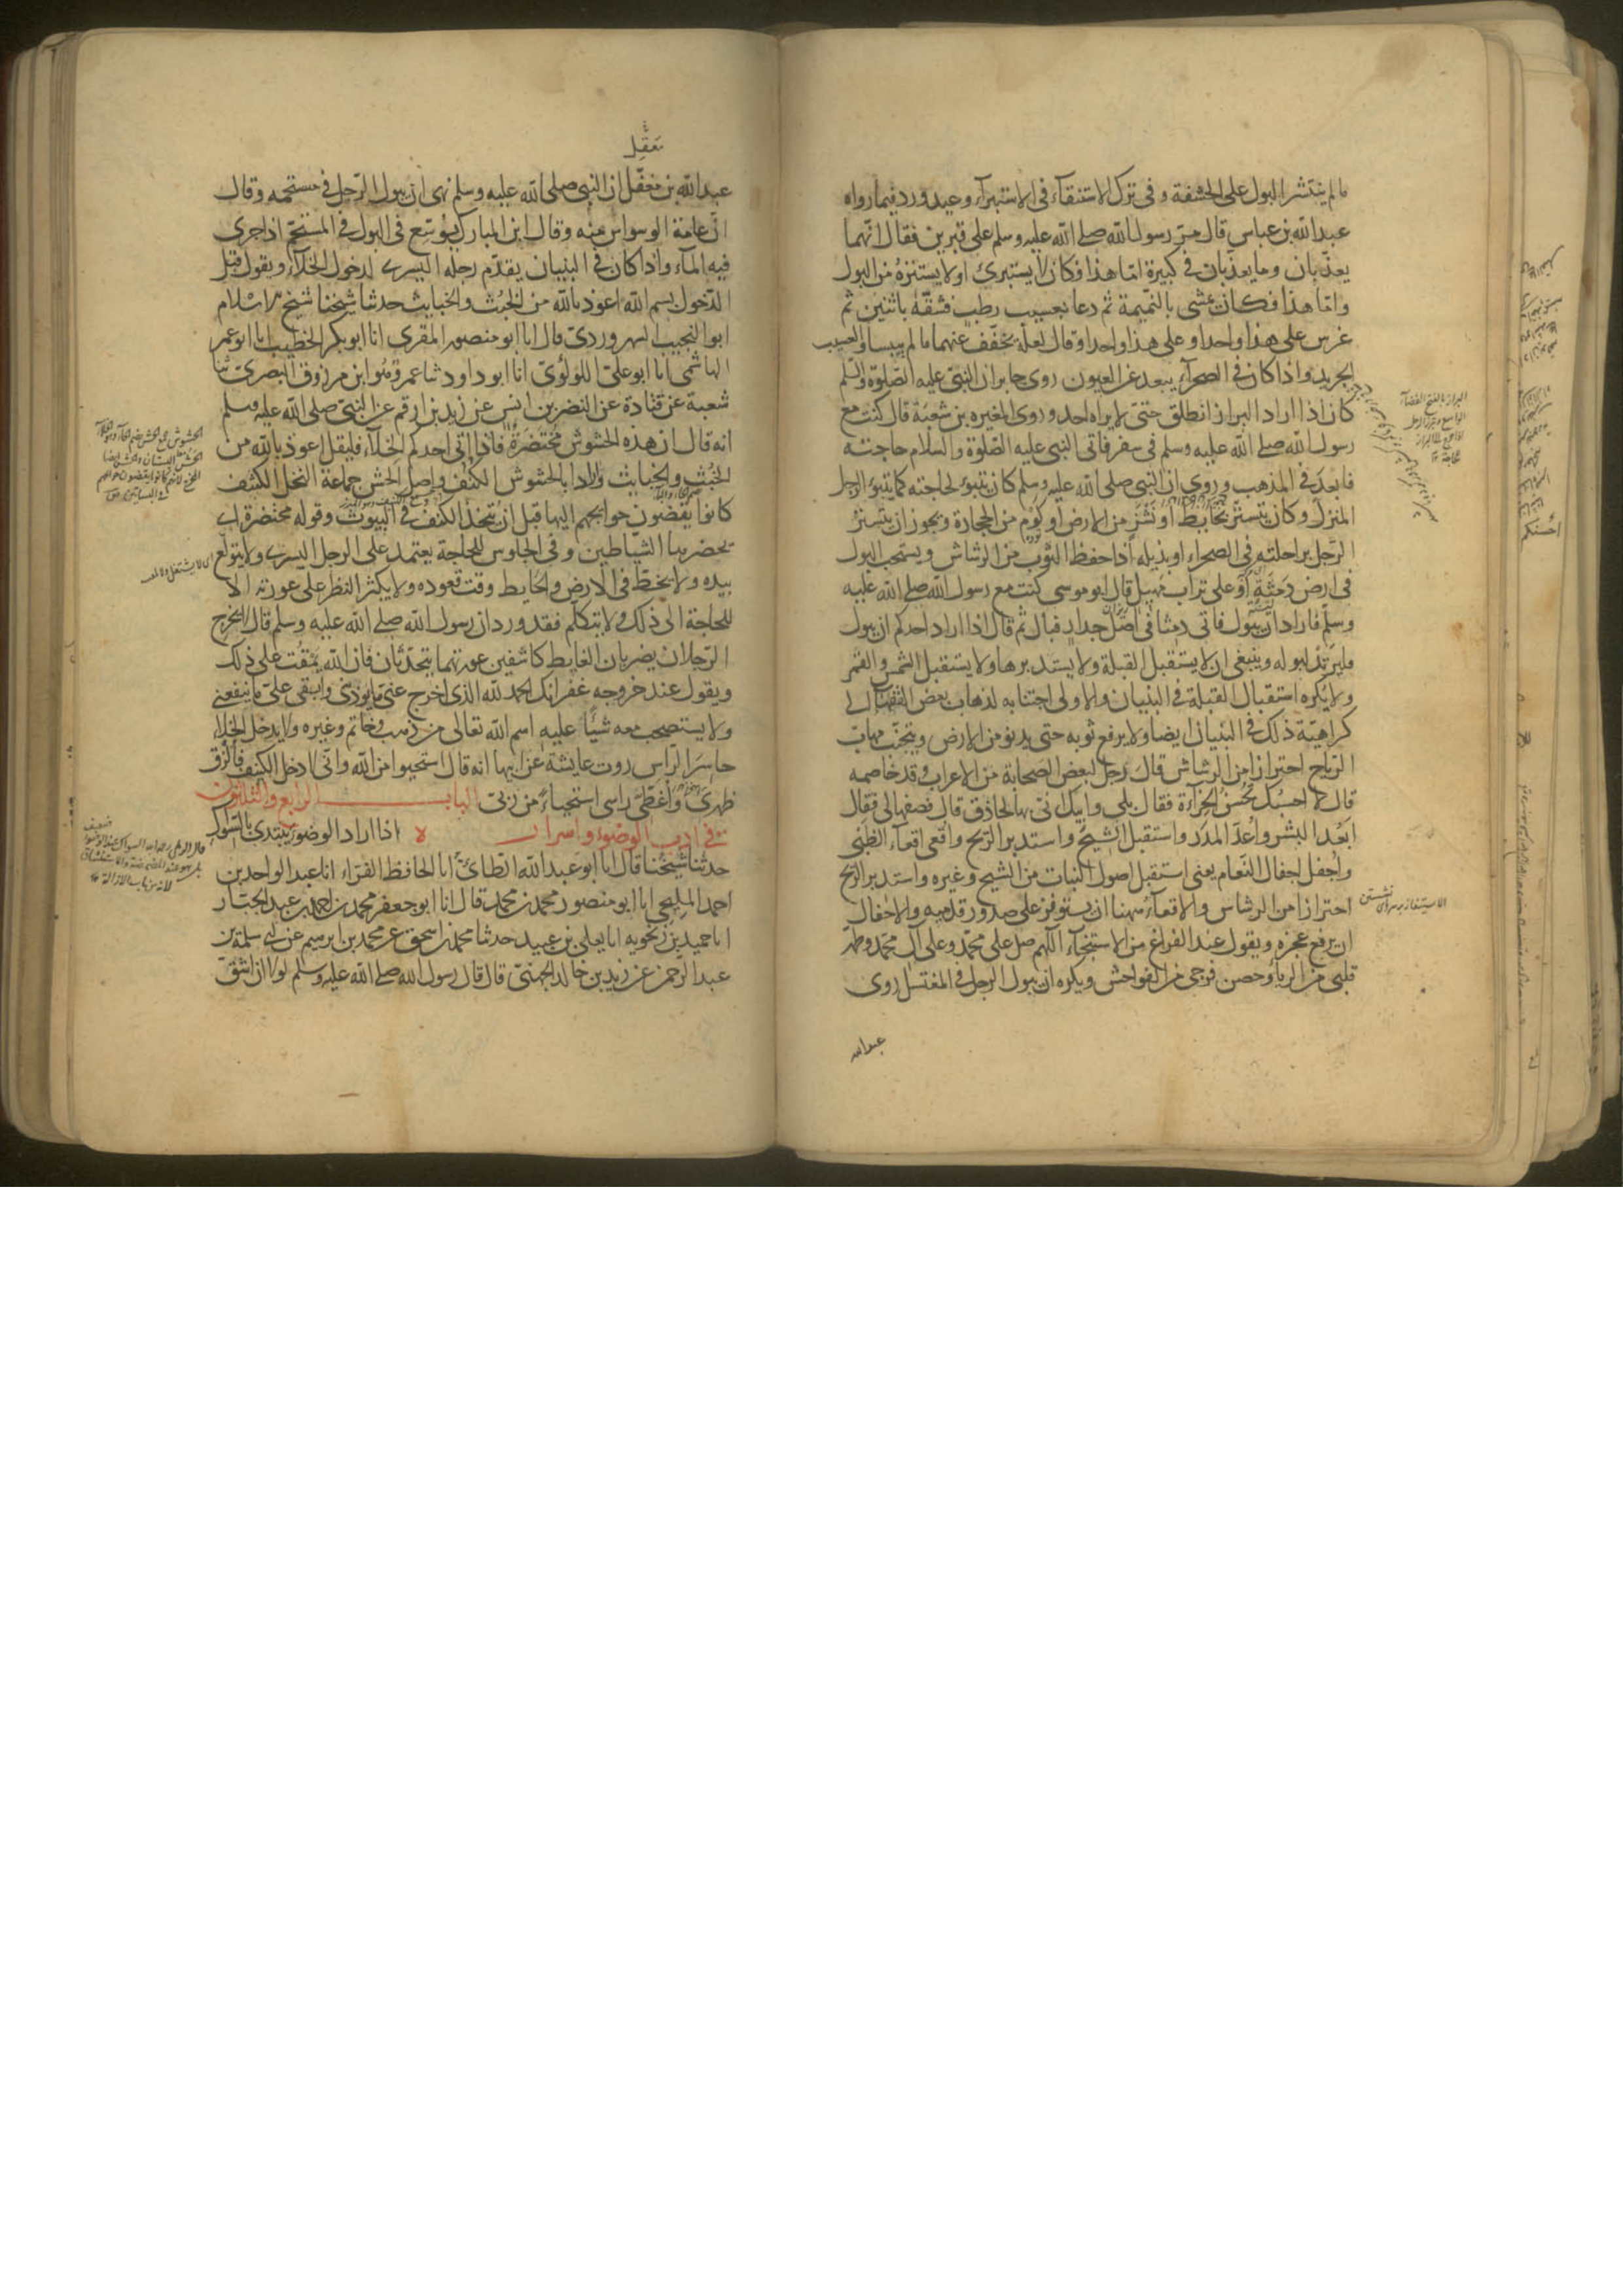 ما لم ينتشر البول على الحشفة وفي ترك الاستنقآء في الاستبرآء وعيد ورد فيما رواه
عبد الله بن عباس قال مرّ رسول الله صلى الله عليه وسلم على قبرين فقال انّهما
يعذّبان وما يعذّبان في كبيرة امّا هذا فكان لا يستبرئ او لا يستنزه من البول
وامّا هذا فكان يمشى بالنّميمة ثم دعا بعسيب رطب فشقّه باثنين ثم
غرس على هذا واحدا وعلى هذا واحدا وقال لعلّه يخفّف عنهما ما لم ييبسا والعسيب
الجريد واذا كان في الصحرآء يبعد عن العيون روى جابر ان النبى عليه الصّلوة والسّلم
كان اذا اراد البراز انطلق حتى لا يراه احد وروى المغيره بن شعبة قال كنت مع
رسول الله صلى الله عليه وسلم في سفر فاتى النبى عليه الصّلوة والسلام حاجته
فابعد في المذهب وروى ان النبى صلى الله عليه وسلم كان يتبوّء لحاجته كما يتبوّء الرجل
المنزل وكان يتستّر بحايط او نشز من الارض او كوم من الحجارة ويجوز ان يتستّر
الرّجل براحلته في الصحراء او بذيله اذا حفظ الثوب من الرشاش ويستحب البول
في ارض دمثة او على تراب مهيل قال ابو موسى كنت مع رسول الله صلى الله عليه
وسلّم فاراد ان يبول فاتى دمثا في اصل جدار فبال ثم قال اذا اراد احدكم ان يبول
فليرتد لبوله وينبغى ان لا يستقبل القبلة ولا يستدبرها ولا يستقبل الشمس والقمر
ولا يكره استقبال القبلة في البنيان والاولى اجتنابه لذهاب بعض الفقهآء الى
كراهيّة ذلك في البنيان ايضا ولا يرفع ثوبه حتى يدنو من الارض ويتجنّب مهابّ
الرّياح احترازا من الرشاش قال رجل لبعض الصحابة من الاعراب وقد خاصمه
قال لا احسبك تحسن الخراءة فقال بلى وابيك انى بها لحاذق قال فصفها لى فقال
ابعد البشر واعدّ المدر واستقبل الشيح واستدبر الرّيح واقعى اقعآء الظبى
واجفل اجفال النّعام يعنى استقبل اصول النبات من الشيح وغيره واستدبر الريح
احترازا من الرشاش والاقعآء ههنا ان يستوفز على صدور قدميه والاجفال
ان يرفع عجزه ويقول عند الفراغ من الاستنجآء اللهم صل على محمّد وعلى آل محمّد وطهّر
قلبى من الريآء وحصن فرجى من الفواحش ويكره ان يبول الرجل في المغتسل روى
عبدالله
البراز بالفتح الفضآء
الواسع
احسنكم
معقل
عبد الله بن مغفّل ان النبى صلى الله عليه وسلم نهى ان يبول الرّجل في مستحمه وقال
انّ عامّة الوسواس منه وقال ابن المبارك يوسّع في البول في المستحمّ اذا جرى
فيه المآء واذا كان في البنيان يقدّم رجله اليسرى لدخول الخلآء ويقول قبل
الدّخول بسم الله اعوذ بالله من الخبث والخبايث حدثنا شيخنا شيخ الاسلام
ابو النجيب السهروردى قال انا ابو منصور المقرى انا ابو بكر الخطيب انا ابو عمر
الهاشمى انا ابو على اللولؤى انا ابو داود ثنا عمرو هو ابن مرزوق البصرى ثنا
شعبة عن قتادة عن النضر بن انس عن زيد بن ارقم عن النبى صلى الله عليه وسلم
انه قال ان هذه الحشوش محتضرة فاذا اتى احدكم الخلآء فليقل اعوذ بالله من
الخبث والخبايث واراد بالحشوش الكنف واصل الحش جماعة النخل الكثيف
كانوا يقضون حوايجهم اليها قبل ان يتخذ الكنف في البيوت وقوله محتضرة اى
يحضرها الشّياطين وفي الجلوس للحاجة يعتمد على الرجل اليسرى ولا يتولع
بيده ولا يخطّ في الارض والحايط وقت قعوده ولا يكثر النظر على عورته الا
للحاجة الى ذلك ولا يتكلّم فقد ورد ان رسول الله صلى الله عليه وسلم قال لا يخرج
الرّجلان يضربان الغايط كاشفين عورتهما يتحدّثان فان الله يمقت على ذلك
ويقول عند خروجه غفرانك الحمد لله الذى اخرج عنى ما يؤذينى وابقى علىّ ما ينفعنى
ولا يستصحب معه شيئا عليه اسم الله تعالى من ذهب وخاتم وغيره ولا يدخل الخلاء
حاسر الرّاس روت عايشة عن ابيها انه قال استحيوا من الله وانى لادخل الكنيف فالزق
ظهرى واغطى راسى استحياء من ربى الباب الرابع والثلثون
في اداب الوضوء واسراره اذا اراد الوضوء يبتدئ بالسّواك
حدثنا شيخنا قال انا ابو عبد الله الطائى انا الحافظ الفرّاء انا عبد الواحد بن
احمد المليحى انا ابو منصور محمد بن محمد قال انا ابو جعفر محمد بن احمد بن عبد الجبّار
انا حميد بن زنجويه انا يعلى بن عبيد حدثنا محمد بن اسحق عن محمد بن ابرهيم عن ابى سلمة بن
عبد الرّحمن عن زيد بن خالد الجهنى قال قال رسول الله صلى الله عليه وسلم لولا ان اشقّ